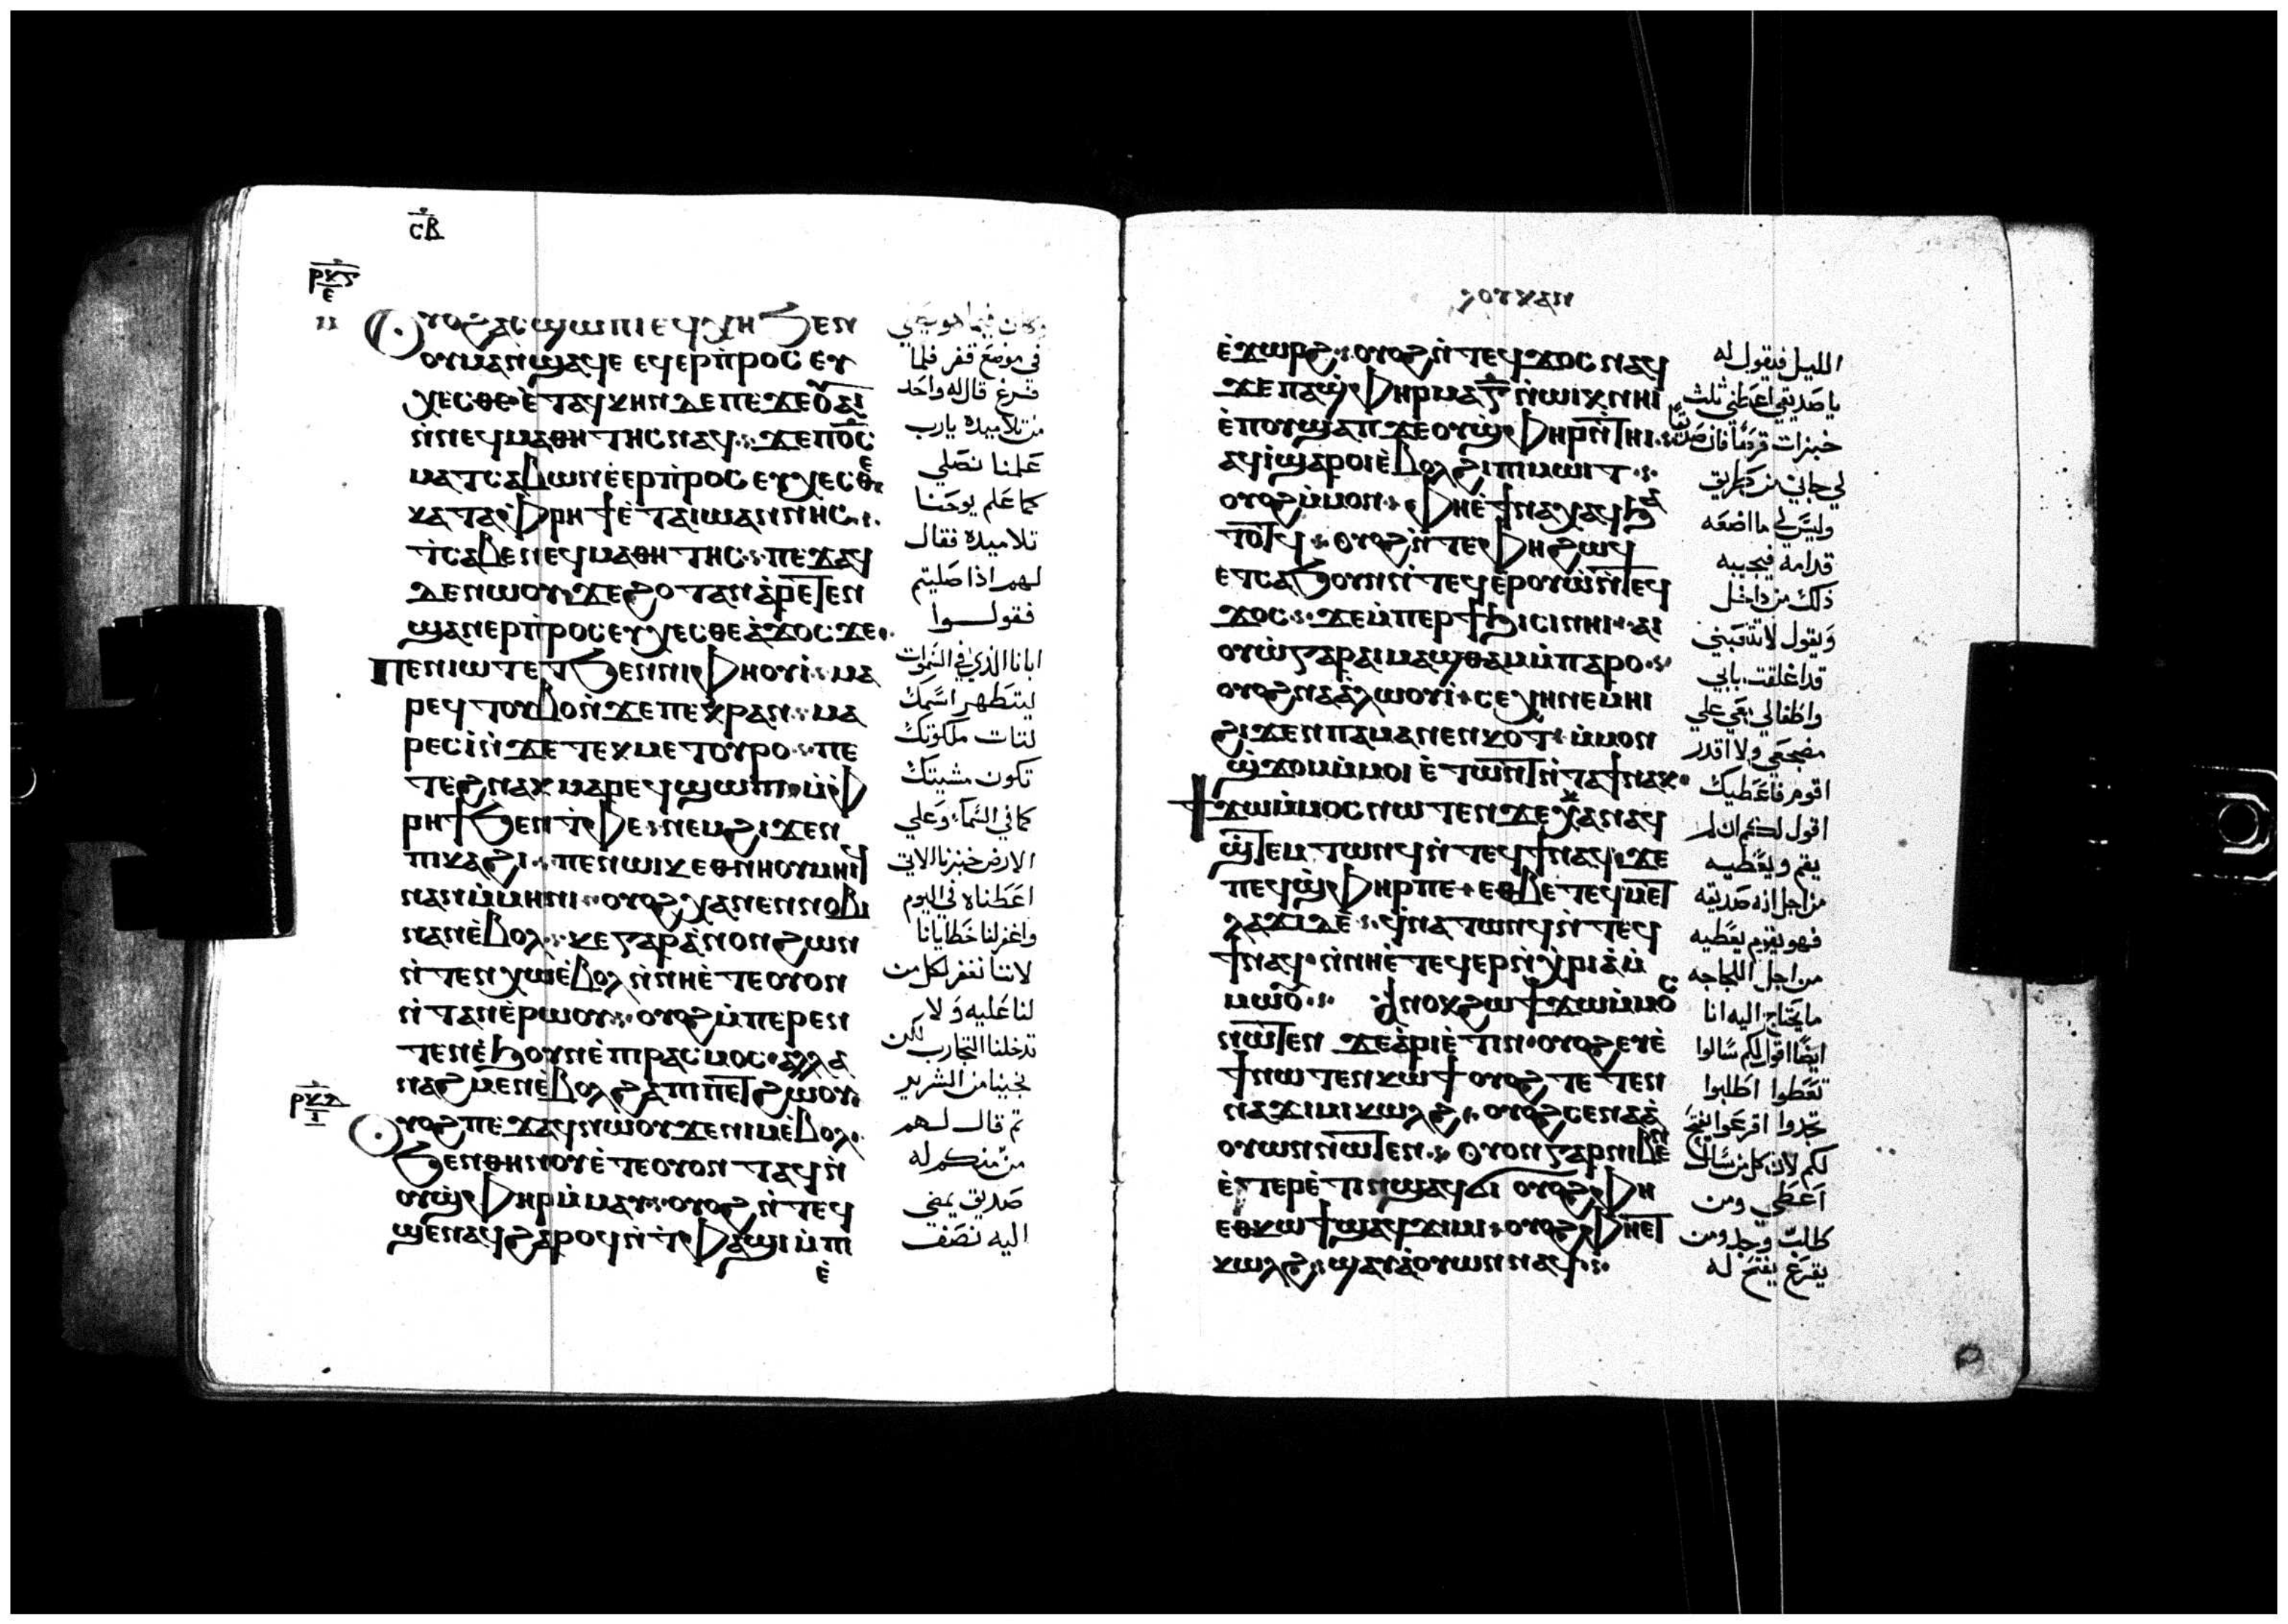 ⲥⲃ
ⲣⲕⲋ
ⲉ
ⲟⲩⲟϩ ⲁⲥϣⲱⲡⲓ ⲉϥⲭⲏ ϧⲉⲛ
ⲟⲩⲙⲁⲛ̀ϣⲁϥⲉ ⲉϥⲉⲣⲡ̀ⲣⲟⲥⲉⲩ
ⲭⲉⲥⲑⲉ ⲉ̀ⲧⲁϥⲕⲏⲛ ⲇⲉ ⲡⲉϫⲉ ⲟⲩⲁⲓ
ⲛ̀ⲛⲉϥⲙⲁⲑⲏⲧⲏⲥ ⲛⲁϥ ϫⲉ ⲡⲟ̅ⲥ̅
ⲙⲁⲧⲥⲁⲃⲱⲛ ⲉ̀ⲉⲣⲡ̀ⲣⲟⲥⲉⲩⲭⲉⲥⲑⲉ
ⲕⲁⲧⲁ ⲫⲣⲏϯ ⲉ̀ⲧⲁ ⲓⲱⲁⲛⲛⲏⲥ
ⲧ̀ⲥⲁⲃⲉ ⲛⲉϥⲙⲁⲑⲏⲧⲏⲥ ⲡⲉϫⲁϥ
ⲇⲉ ⲛⲱⲟⲩ ϫⲉ ϩⲟⲧⲁⲛ ⲁ̀ⲣⲉⲧⲉⲛ
ϣⲁⲛⲉⲣⲡ̀ⲣⲟⲥⲉⲩⲭⲉⲥⲑⲉ ⲁ̀ϫⲟⲥ ϫⲉ
ⲡⲉⲛⲓⲱⲧ ⲉⲧϧⲉⲛ ⲛⲓⲫⲏⲟⲩⲓ̀ ⲙⲁ
ⲣⲉϥⲧⲟⲩⲃⲟ ⲛ̀ϫⲉ ⲡⲉⲕⲣⲁⲛ ⲙⲁ
ⲣⲉⲥⲓ̀ ⲛ̀ϫⲉ ⲧⲉⲕⲙⲉⲧⲟⲩⲣⲟ ⲡⲉ
ⲧⲉϩⲛⲁⲕ ⲙⲁⲣⲉϥϣⲱⲡⲓ ⲙ̀ⲫ
ⲣⲏϯ ϧⲉⲛ ⲧ̀ⲫⲉ ⲛⲉⲙ ϩⲓϫⲉⲛ
ⲡⲓⲕⲁϩⲓ ⲡⲉⲛⲱⲓⲕ ⲉⲑⲛⲏⲟⲩ ⲙⲏⲓϥ
ⲛⲁⲛ ⲙ̀ⲙⲏⲛⲓ ⲟⲩⲟϩ ⲭⲁ ⲛⲉⲛⲛⲟⲃⲓ
ⲛⲁⲛ ⲉ̀ⲃⲟⲗ ⲕⲉ ⲅⲁⲣ ⲁ̀ⲛⲟⲛ ϩⲱⲛ
ⲛ̀ⲧⲉⲛⲭⲱ ⲉ̀ⲃⲟⲗ ⲛ̀ⲛⲏ ⲉ̀ⲧⲉ ⲟⲩⲟⲛ
ⲛ̀ⲧⲁⲛ ⲉ̀ⲣⲱⲟⲩ ⲟⲩⲟϩ ⲙ̀ⲡⲉⲣⲉⲛ
ⲧⲉⲛ ⲉ̀ϧⲟⲩⲛ ⲉ̀ⲡⲓⲣⲁⲥⲙⲟⲥ ⲁⲗⲗⲁ
ⲛⲁϩⲙⲉⲛ ⲉ̀ⲃⲟⲗ ϩⲁ ⲡⲓⲡⲉⲧϩⲱⲟⲩ
ⲣⲕⲍ
ⲓ
ⲟⲩⲟϩ ⲡⲉϫⲁϥ ⲛⲱⲟⲩ ϫⲉ ⲛⲓⲙ ⲉ̀ⲃⲟⲗ
ϧⲉⲛ ⲑⲏⲛⲟⲩ ⲉ̀ⲧⲉ ⲟⲩⲟⲛ ⲧⲁϥ ⲛ̀
ⲟⲩϣⲫⲏⲣ ⲙ̀ⲙⲁⲩ ⲟⲩⲟϩ ⲛ̀ⲧⲉϥ
ϣⲉⲛⲁϥ ϩⲁⲣⲟϥ ⲛ̀ⲧ̀ⲫⲁϣⲓ ⲙ̀ⲡⲓ
ⲉ̀
وكان فيما هو يصلي
في موضع قفر فلما
فرغ قال له واحد
من تلاميذه يارب
علمنا نصلي
كما علم يوحنا
تلاميذه فقال
لهم اذا صليتم
فقولوا
ابانا الذي في السموات
ليتطهر اسمك
لتات ملكوتك
تكون مشيتك
كما في السماء وعلي
الارض خبزنا الاتي
اعطناه في اليوم
واغفر لنا خطايانا
لاننا نغفر لكل من
لنا عليه ولا
تدخلنا التجارب لكن
نجينا من الشرير
ثم قال لهم
من منكم له
صديق يمضي
اليه نصف
ⲗⲟⲩⲕⲁⲛ
ⲉ̀ϫⲱⲣϩ ⲟⲩⲟϩ ⲛ̀ⲧⲉϥϫⲟⲥ ⲛⲁϥ
ϫⲉ ⲡⲁϣ̀ⲫⲏⲣ ⲙⲁ ⲅ̅ ⲛ̀ⲱⲓⲕ ⲛⲏⲓ
ⲉ̀ⲡⲟⲩϣⲁⲡ ϫⲉ ⲟⲩϣ̀ⲫⲏⲣ ⲛ̀ⲧⲏⲓ
ⲁϥⲓ̀ ϣⲁⲣⲟⲓ ⲉ̀ⲃⲟⲗ ϩⲓ ⲡⲓⲙⲱⲓⲧ
ⲟⲩⲟϩ ⲙ̀ⲙⲟⲛ ⲫⲏ ⲉ̀ϯⲛⲁⲭⲁϥ ϧⲁ
ⲧⲟⲧϥ ⲟⲩⲟϩ ⲛ̀ⲧⲉ ⲫⲏ ϩⲱϥ
ⲉⲧⲥⲁϧⲟⲩⲛ ⲛ̀ⲧⲉϥⲉ̀ⲣⲟⲩⲱ̀ ⲛ̀ⲧⲉϥ
ϫⲟⲥ ϫⲉ ⲙ̀ⲡⲉⲣϯϧⲓⲥⲓ ⲛⲏⲓ ⲁⲓ
ⲟⲩⲱ̀ ⲅⲁⲣ ⲁⲓⲙⲁϣⲑⲁⲙ ⲙ̀ⲡⲁⲣⲟ
ⲟⲩⲟϩ ⲛⲁⲁ̀ⲗⲱⲟⲩⲓ̀ ⲥⲉⲭⲏ ⲛⲉⲙⲏⲓ
ϩⲓϫⲉⲛ ⲡⲁⲙⲁⲛⲉⲛⲕⲟⲧ ⲙ̀ⲙⲟⲛ
ϣ̀ϫⲟⲙ ⲙ̀ⲙⲟⲓ ⲉ̀ⲧⲱⲛⲧ ⲛ̀ⲧⲁϯ ⲛⲁⲕ
ϯϫⲱ ⲙ̀ⲙⲟⲥ ⲛⲱⲧⲉⲛ ϫⲉ ⲕⲁⲛ ⲁϥ
ϣ̀ⲧⲉⲙⲧⲱⲛϥ ⲛ̀ⲧⲉϥϯ ⲛⲁϥ ϫⲉ
ⲡⲉϥϣ̀ⲫⲏⲣ ⲡⲉ ⲉⲑⲃⲉ ⲧⲉϥⲙⲉⲧ
ⲗⲁϫⲓ ⲇⲉ ϥ̀ⲛⲁⲧⲱⲛϥ ⲛ̀ⲧⲉϥ
ϯ ⲛⲁϥ ⲛ̀ⲛⲏ ⲉ̀ⲧⲉϥⲉⲣⲛ̀ⲭⲣⲓⲁ ⲙ̀
ⲙⲱⲟⲩ ⲁⲛⲟⲕ ϩⲱ ϯϫⲱ ⲙ̀ⲙⲟⲥ
ⲛⲱⲧⲉⲛ ϫⲉ ⲁ̀ⲣⲓⲉ̀ⲧⲓⲛ ⲟⲩⲟϩ ⲉⲩⲉ̀
ϯ ⲛⲱⲧⲉⲛ ⲕⲱϯ ⲟⲩⲟϩ ⲧⲉⲧⲉⲛ
ⲛⲁϫⲓⲙⲓ ⲕⲱⲗϩ ⲟⲩⲟϩ ⲥⲉⲛⲁⲁ̀
ⲟⲩⲱⲛ ⲛⲱⲧⲉⲛ ⲟⲩⲟⲛ ⲅⲁⲣ ⲛⲓⲃⲉⲛ
ⲉ̀ⲧⲉⲣⲉ̀ⲧⲓⲛ ϣⲁϥϭⲓ ⲟⲩⲟϩ ⲫⲏ
ⲉⲑⲕⲱϯ ϣⲁϥϫⲓⲙⲓ ⲟⲩⲟϩ ⲫⲏⲉⲧ
ⲕⲱⲗϩ ϣⲁⲩⲁ̀ⲟⲩⲱⲛ ⲛⲁϥ
الليل فيقول له
يا صديقي اعطني ثلث
خبزات قرضًا فان صديقًا
لي جاني من طريق
وليس لي ما اضعه
قدامه فيجيبه
ذلك من داخل
ويقول لا تتعبني
قد اغلقت بابي
واطفالي معي علي
مضجعي ولا اقدر
اقوم فاعطيك
اقول لكم ان لم
يقم ويعطيه
من اجل انه صديقه
فهو يقوم يعطيه
من اجل اللجاجه
ما يحتاج اليه انا
ايضًا اقول لكم سالوا
تعطوا اطلبوا
تجدوا اقرعوا يفتح
لكم لان كل من سال
اعطي ومن
طلب وجد ومن
يقرع يفتح له